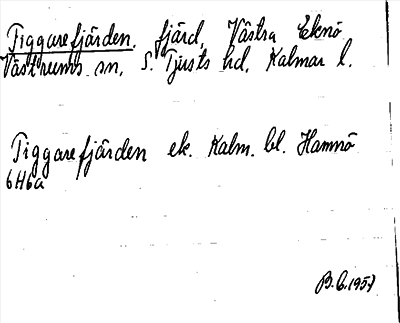 Tiggarefjärden, fjärd, Västra Eknö
Västrums sn, S. Tjusts hd, Kalmar l.
Tiggarefjärden ek. Kalm. bl. Hamnö
6H6a
B.G.1957